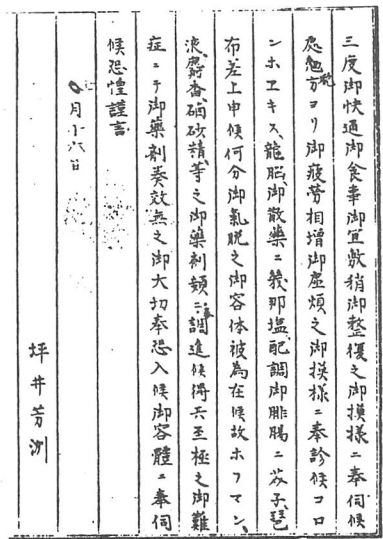 三度御快通御食事御宜敷稍御整復之御摸様ニ奉伺候
處晩方ヨリ御疲勞相増御虚煩之御摸様ニ奉診候コロ
ンホヱキス、龍脳、御散藥ニ幾那塩、配調御腓腸ニ芥子琶
布差上申候何分御氣脱之御容体被為在候故ホフマン、
液、麝香、硇砂精、等之御藥剤類調進候得共至極之御難
症ニテ御藥剤奏效無之御大切奉恐入候御容體ニ奉伺
候恐惶謹言
月廿六日
坪井芳洲